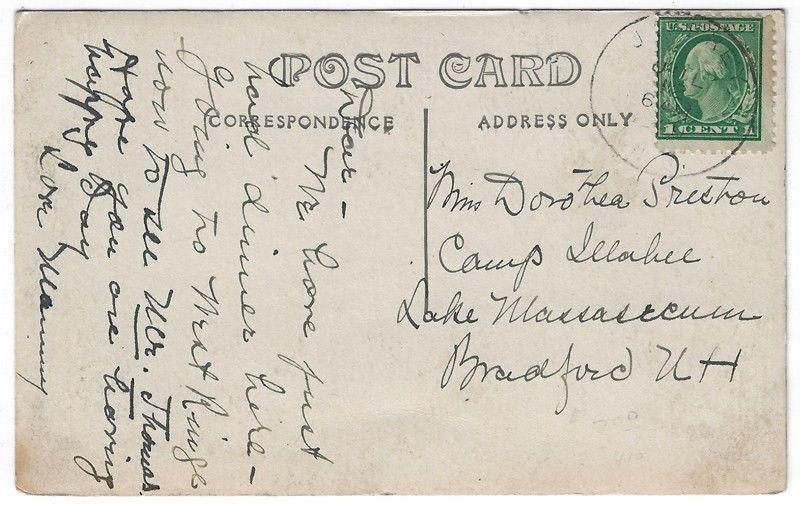 POST CARD
CORRESPONDENCE
ADDRESS ONLY
U.S. POSTAGE
1 CENT 1
Dear -
We have just
had dinner here -
Going to West Rindge
now to see Mr. Thomas.
Hope you are having
happy day
Love Mammy
Miss Dorothea Preston
Camp Illahee
Lake Massasecum
Bradford NH